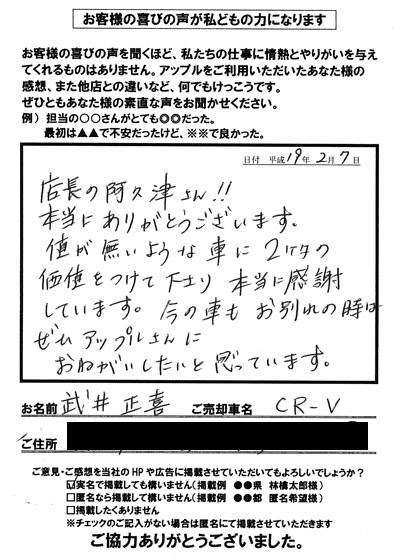 お客様の喜びの声が私どもの力になります
お客様の喜びの声を聞くほど、私たちの仕事に情熱とやりがいを与え
てくれるものはありません。アップルをご利用いただいたあなた様の
感想、また他店との違いなど、何でもけっこうです。
ぜひともあなた様の素直な声をお聞かせください。
例）担当の○○さんがとても◎◎だった。
最初は▲▲で不安だったけど、※※で良かった。
日付 平成19年2月7日
店長の阿久津さん!!
本当にありがとうございます。
値が無いような車に2ケタの
価値をつけて下さり 本当に感謝
しています。今の車も お別れの時は
ぜひ アップルさんに
おねがいしたいと思っています。
お名前 武井 正喜 ご売却車名 CR-V
ご住所
ご意見・ご感想を当社のHPや広告に掲載させていただいてもよろしいでしょうか？
☑実名で掲載しても構いません（掲載例 ●●県 林檎太郎様）
□匿名なら掲載して構いません（掲載例 ●●都 匿名希望様）
□掲載したくありません
※チェックのご記入がない場合は匿名にて掲載させていただきます
ご協力ありがとうございました。